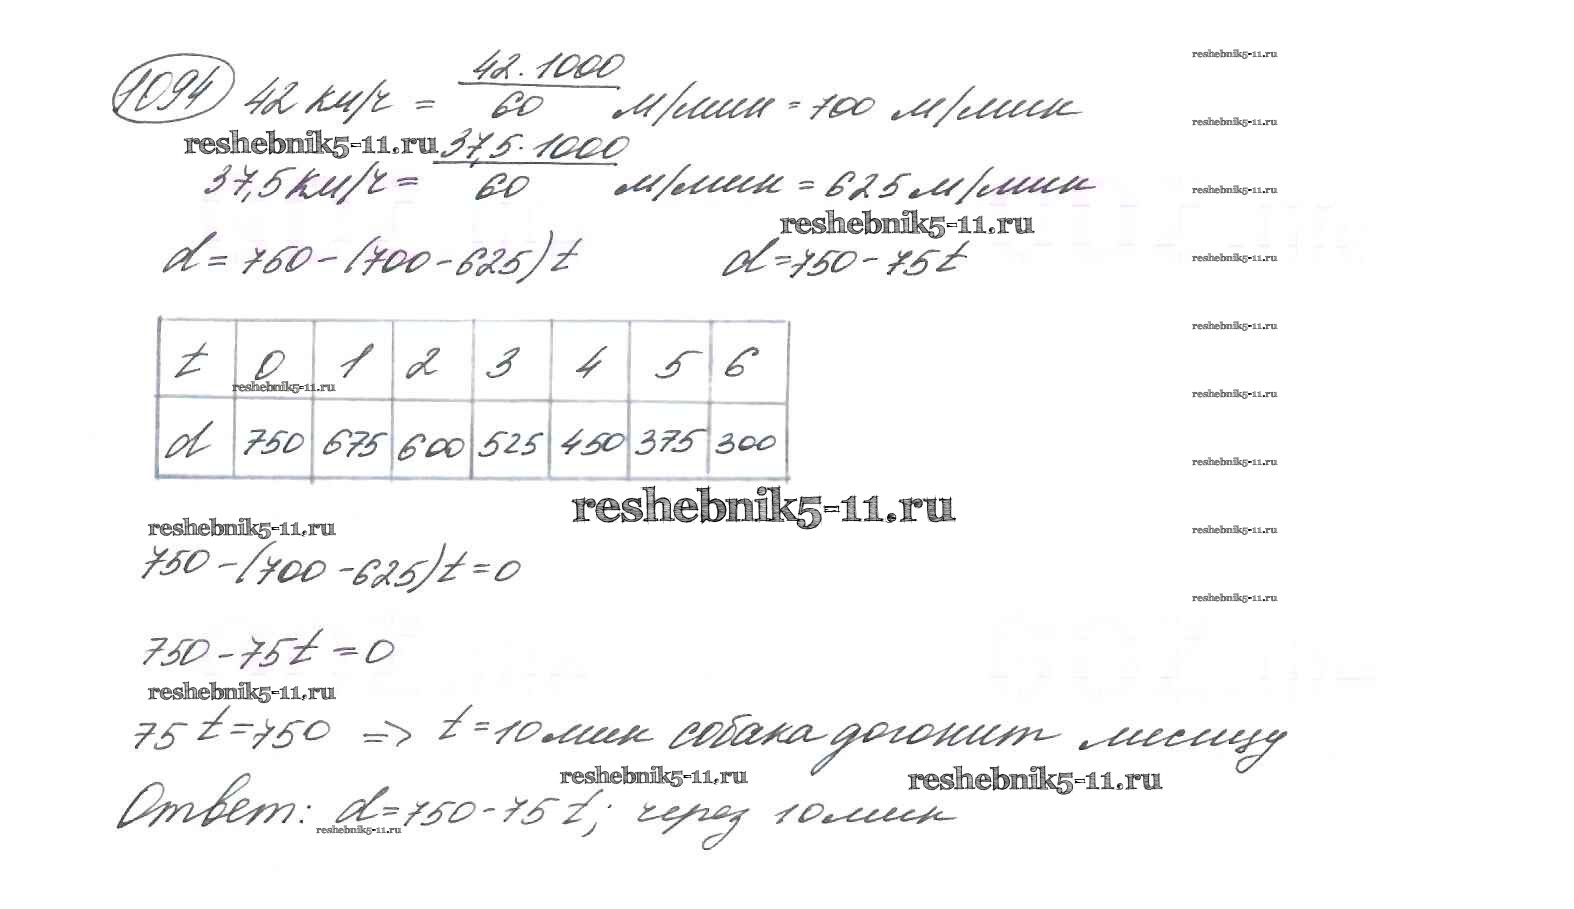 reshebnik5-11.ru
1094 42 км/ч = 42·1000/60 м/мин = 700 м/мин
reshebnik5-11.ru
reshebnik5-11.ru
37,5 км/ч = 37,5·1000/60 м/мин = 625 м/мин
reshebnik5-11.ru
reshebnik5-11.ru
d = 750 - (700 - 625)t d = 750 - 75t
reshebnik5-11.ru
reshebnik5-11.ru
t 0 1 2 3 4 5 6
reshebnik5-11.ru
reshebnik5-11.ru
d 750 675 600 525 450 375 300
reshebnik5-11.ru
reshebnik5-11.ru
reshebnik5-11.ru
reshebnik5-11.ru
750 - (700 - 625)t = 0
reshebnik5-11.ru
750 - 75t = 0
reshebnik5-11.ru
75t = 750 => t = 10 мин собака догонит лисицу
reshebnik5-11.ru
reshebnik5-11.ru
Ответ: d = 750 - 75t; через 10 мин
reshebnik5-11.ru